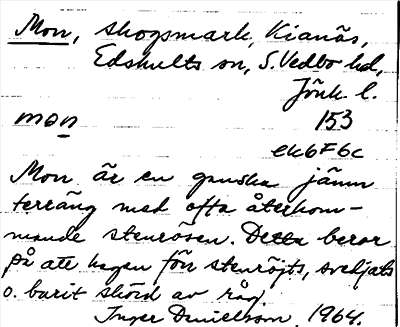 Mon, skogsmark, Kianäs,
Edshults sn, S. Vedbo hd,
Jönk l.
mon 153
ek6F6c
Mon är en ganska jämn
terräng med ofta återkom-
mande stenrösen. Detta beror
på att hagen förr stenröjts, svedjats
o. burit skörd av råg.
Inger Danielsson 1964.